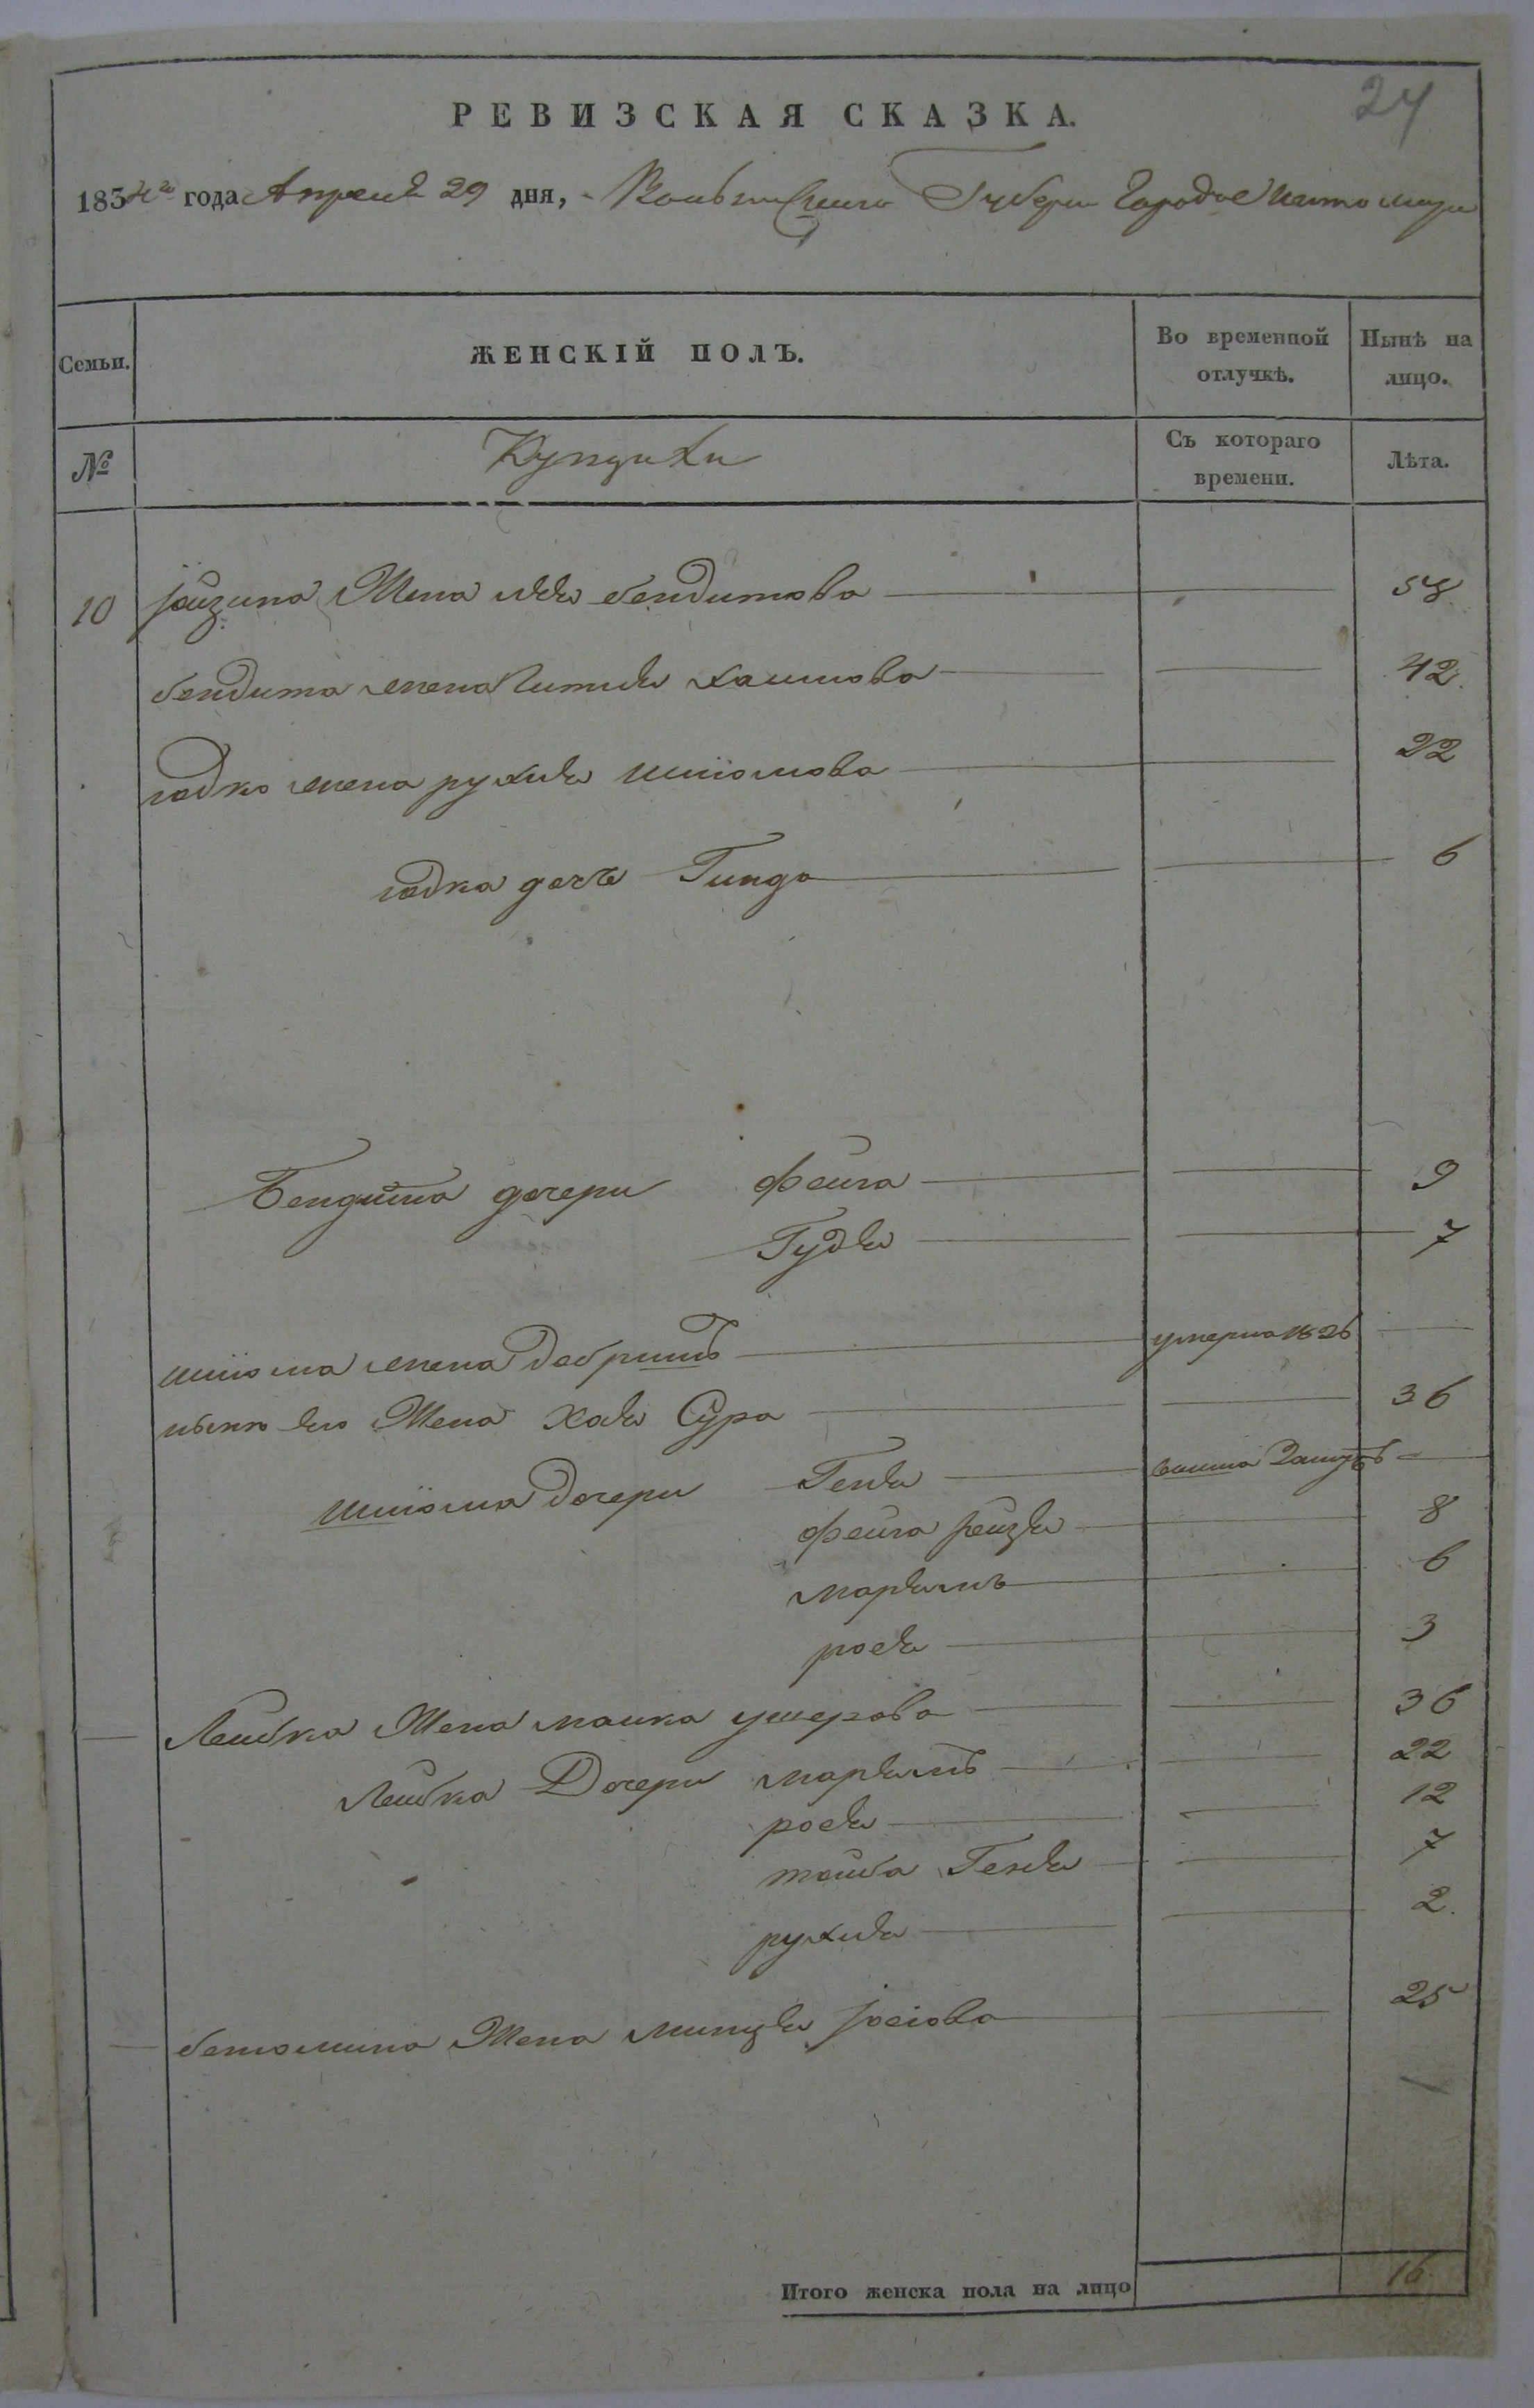 24
РЕВИЗСКАЯ СКАЗКА.
1834го года Апреля 29 дня, Волынской Губерн. Городае Житомира
Семьи.
ЖЕНСКІЙ ПОЛЪ.
Во временной отлучкѣ.
Нынѣ на лицо.
№
Купчихи
Съ котораго времени.
Лѣта.
10 Жена бендитова 58
бендита жена Хаимова 42
жена рухля шліомова 22
дочь Гинда 6
Бендита дочери Фейга 9
Гудля 7
шліома жена Добришъ умерла 1826
Жена Хая Сура 36
шліома дочери Геня вышла Замужъ
Фейга Рейзя 8
марьямъ 6
рося 3
Лейбка Жена малка ушерова 36
Лейбка Дочери марьямъ 22
рося 12
тайба Геня 7
рухля 2.
беніомина Жена миндля Іосіова 25
Итого женска пола на лицо 16